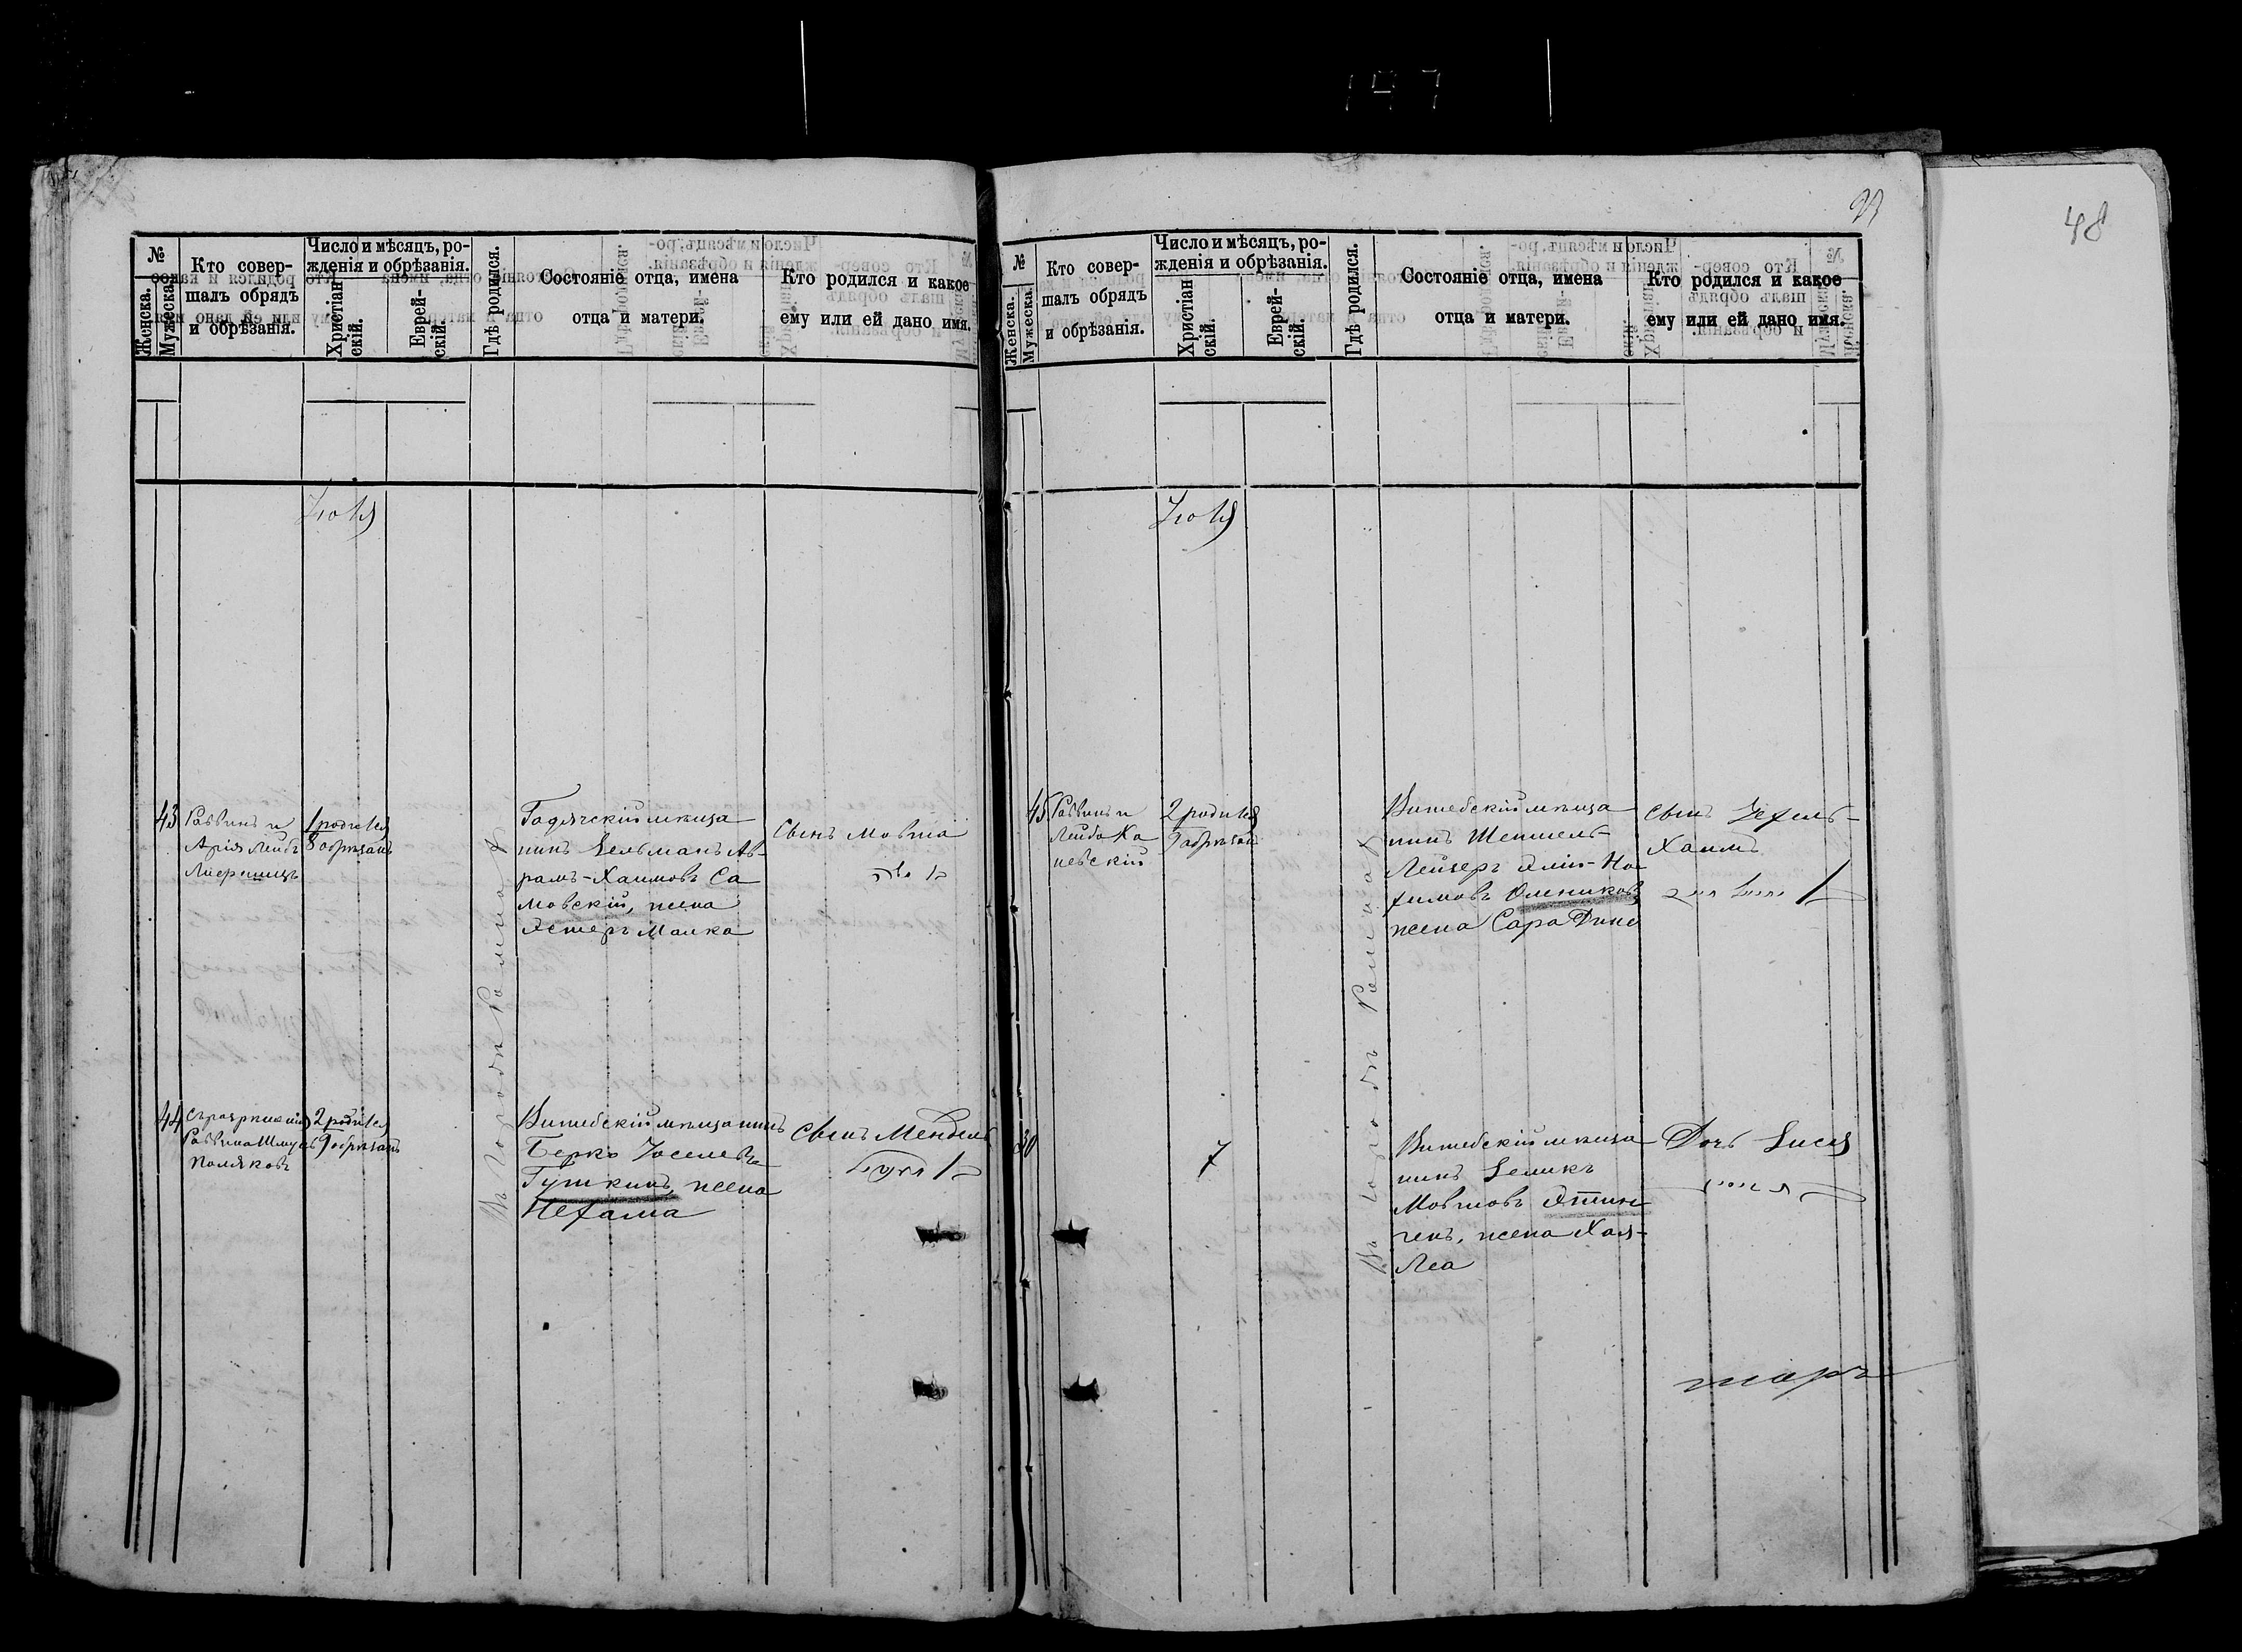 147
48
№
Женска.
Мужеска.
Кто совер-
шалъ обрядъ
и обрѣзанія.
Число и мѣсяцъ, ро-
жденія и обрѣзанія.
Христіан-
скій.
Еврей-
скій.
Гдѣ родился.
Состояніе отца, имена
отца и матери.
Кто родился и какое
ему или ей дано имя.
Іюля
43
Раввинъ и
Арія Лейбъ
1 родился
8 обрѣзанъ
Въ городѣ Ромнахъ
Гадячскій мѣща
нинъ Зельманъ Ав-
рамъ-Хаимовъ Са
мовскій, жена
Эстеръ Малка
Сынъ Мовша
44
Съ разрѣшенія
Раввина Шмуль
Поляковъ
2 родился
9 обрѣзанъ
Витебскій мѣщанинъ
Берко Іоселевъ
Гуткинъ, жена
Нехама
Сынъ Мендель
№
Женска.
Мужеска.
Кто совер-
шалъ обрядъ
и обрѣзанія.
Число и мѣсяцъ, ро-
жденія и обрѣзанія.
Христіан-
скій.
Еврей-
скій.
Гдѣ родился.
Состояніе отца, имена
отца и матери.
Кто родился и какое
ему или ей дано имя.
Іюля
45
Раввинъ и
Лейба Ка
невскій
2 родился
9 обрѣзанъ
Въ городѣ Ромнахъ
Витебскій мѣща
нинъ
Лейзеръ
жена Сара
Сынъ
Хаимъ
30
7
Витебскій мѣща
нинъ Зеликъ
Мовшовъ Этин
генъ, жена Хая-
Леа
Дочь